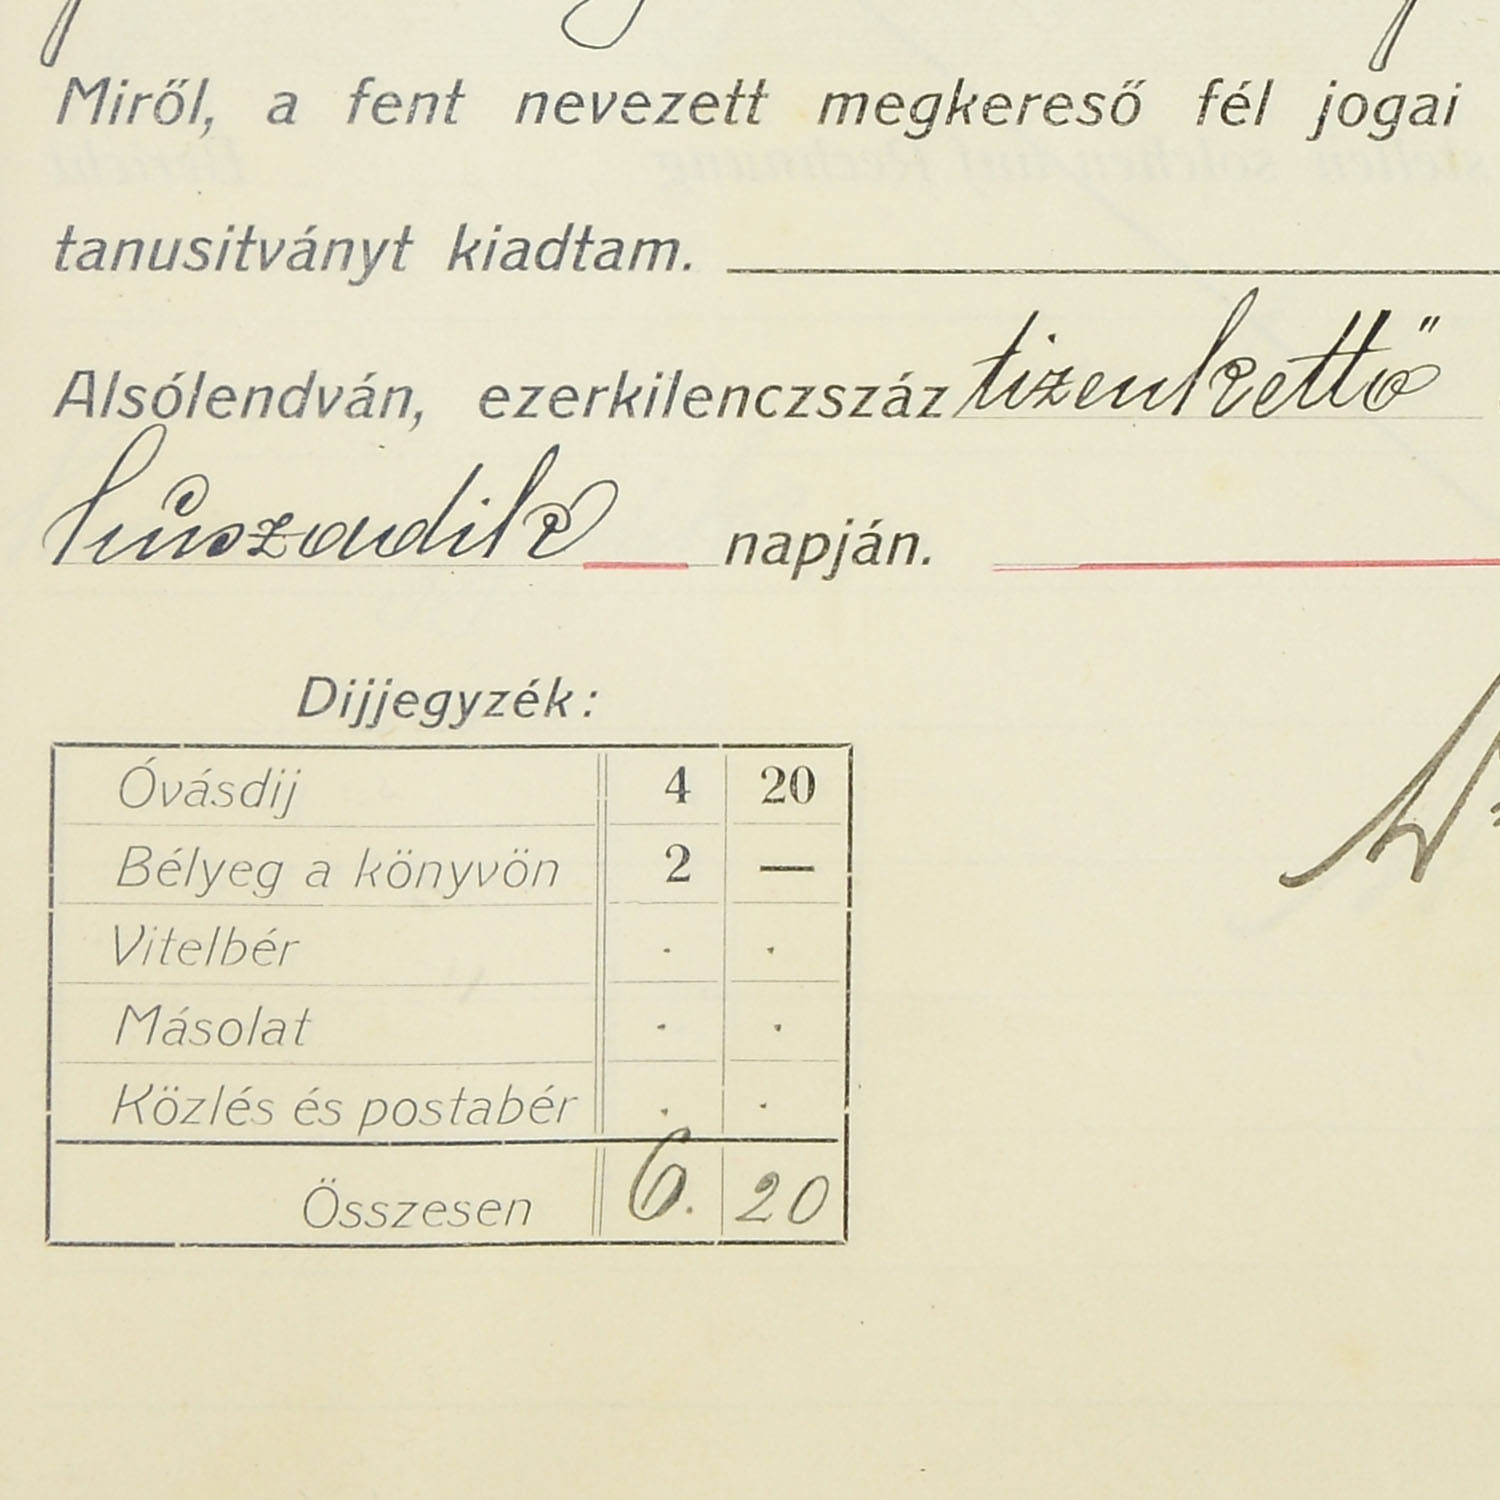 Miről, a fent nevezett megkereső fél jogai
tanusitványt kiadtam.
Alsólendván, ezerkilenczszáz tizenkettő
huszadik napján.
Dijjegyzék:
Óvásdij 4 20
Bélyeg a könyvön 2 —
Vitelbér . .
Másolat . .
Közlés és postabér . .
Összesen 6. 20